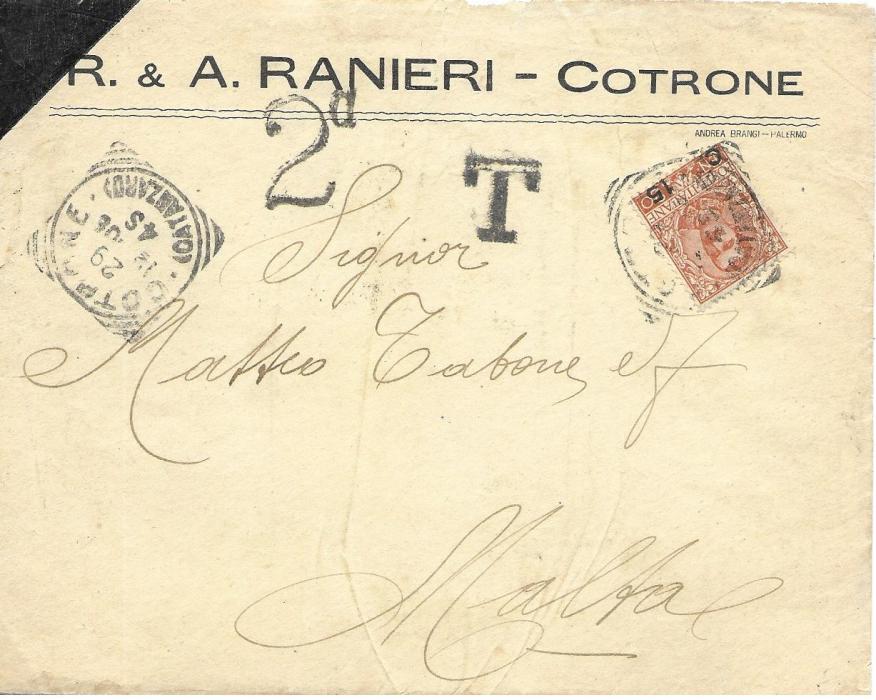 R. & A. RANIERI - COTRONE
ANDREA BRANGI—PALERMO
2d
T
C. 15
COTRONE (CATANZARO)
29 12 06
4S
Signor
Matteo Tabone e F
Malta